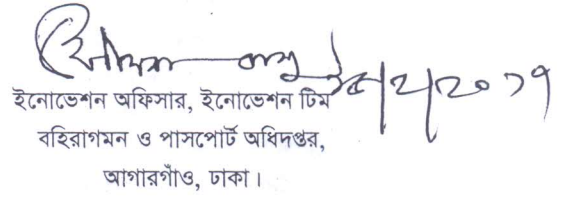 ইনোভেশন অফিসার, ইনোভেশন টিম
বহিরাগমন ও পাসপোর্ট অধিদপ্তর,
আগারগাঁও, ঢাকা।